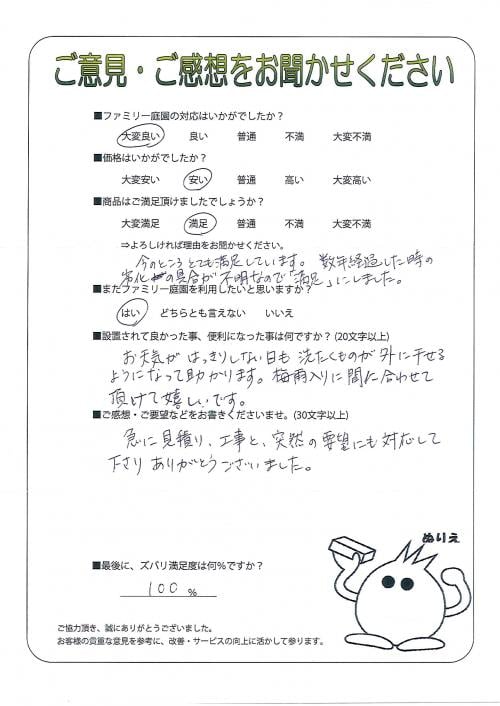 ご意見・ご感想をお聞かせください
■ファミリー庭園の対応はいかがでしたか?
大変良い 良い 普通 不満 大変不満
■価格はいかがでしたか?
大変安い 安い 普通 高い 大変高い
■商品はご満足頂けましたでしょうか?
大変満足 満足 普通 不満 大変不満
⇒よろしければ理由をお聞かせください。
今のところとても満足しています。数年経過した時の
劣化の具合が不明なので「満足」にしました。
■またファミリー庭園を利用したいと思いますか?
はい どちらとも言えない いいえ
■設置されて良かった事、便利になった事は何ですか?(20文字以上)
お天気がはっきりしない日も洗たくものが外に干せる
ようになって助かります。梅雨入りに間に合わせて
頂けて嬉しいです。
■ご感想・ご要望などをお書きくださいませ。(30文字以上)
急に見積り、工事と、突然の要望にも対応して
下さりありがとうございました。
ぬりえ
■最後に、ズバリ満足度は何%ですか?
100 %
ご協力頂き、誠にありがとうございました。
お客様の貴重な意見を参考に、改善・サービスの向上に活かして参ります。